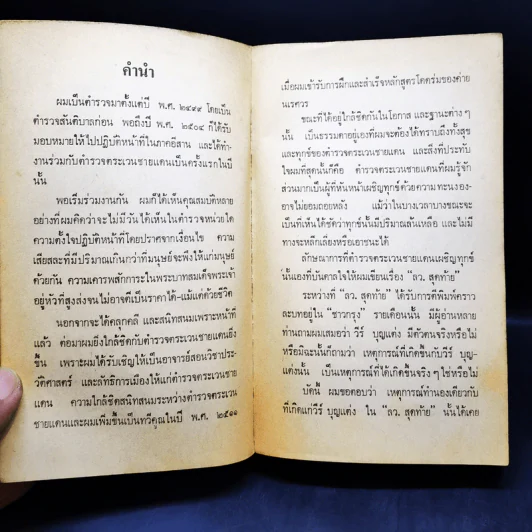 คำนำ
ผมเป็นตำรวจมาตั้งแต่ปี พ.ศ. ๒๔๙๙ โดยเป็น
ตำรวจสันติบาลก่อน พอถึงปี พ.ศ. ๒๕๐๔ ก็ได้รับ
มอบหมายให้ไปปฏิบัติหน้าที่ในภาคอีสาน และได้ทำ-
งานร่วมกับตำรวจตระเวนชายแดนเป็นครั้งแรกในปี
นั้น
พอเริ่มร่วมงานกัน ผมก็ได้เห็นคุณสมบัติหลาย
อย่างที่ผมคิดว่าจะไม่มีวันได้เห็นในตำรวจหน่วยใด
ความตั้งใจปฏิบัติหน้าที่โดยปราศจากเงื่อนไข ความ
เสียสละที่มีปริมาณเกินกว่าที่มนุษย์จะพึงให้แก่มนุษย์
ด้วยกัน ความเคารพสักการะในพระบาทสมเด็จพระเจ้า
อยู่หัวที่สูงส่งจนไม่อาจตีเป็นราคาได้-แม้แต่ด้วยชีวิต
นอกจากจะได้คลุกคลี และสนิทสนมเพราะหน้าที่
แล้ว ต่อมาผมยังใกล้ชิดกับตำรวจตระเวนชายแดนยิ่ง
ขึ้น เพราะผมได้รับเชิญให้เป็นอาจารย์สอนวิชาประ-
วัติศาสตร์ และลัทธิการเมืองให้แก่ตำรวจตระเวนชาย-
แดน ความใกล้ชิดสนิทสนมระหว่างตำรวจตระเวน
ชายแดนและผมเพิ่มขึ้นเป็นทวีคูณในปี พ.ศ. ๒๕๑๑
เมื่อผมเข้ารับการฝึกและสำเร็จหลักสูตรโดดร่มของค่าย
นเรศวร
ขณะที่ได้อยู่ใกล้ชิดกันในโอกาส และฐานะต่าง ๆ
นั้น เป็นธรรมดาอยู่เองที่ผมจะต้องได้ทราบถึงทั้งสุข
และทุกข์ของตำรวจตระเวนชายแดน และสิ่งที่ประทับ
ใจผมที่สุดนั้นก็คือ ตำรวจตระเวนชายแดนที่ผมรู้จัก
ส่วนมากเป็นผู้ที่หันหน้าเผชิญทุกข์ด้วยความทะนงอง-
อาจไม่ยอมถอยหลัง แม้ว่าในบางเวลาบางขณะจะ
เป็นที่เห็นได้ชัดว่าทุกข์นั้นมีปริมาณล้นเหลือ และไม่มี
ทางจะหลีกเลี่ยงหรือเอาชนะได้
ลักษณาการที่ตำรวจตระเวนชายแดนเผชิญทุกข์
นั้นเองที่บันดาลใจให้ผมเขียนเรื่อง “ลว. สุดท้าย”
ระหว่างที่ “ลว. สุดท้าย” ได้รับการตีพิมพ์คราว
ละบทอยู่ใน “ชาวกรุง” รายเดือนนั้น มีผู้อ่านหลาย
ท่านถามผมเสมอว่า วีร์ บุญแต่ง มีตัวตนจริงหรือไม่
หรือมิฉะนั้นก็ถามว่า เหตุการณ์ที่เกิดขึ้นกับวีร์ บุญ-
แต่งนั้น เป็นเหตุการณ์ที่ได้เกิดขึ้นจริง ๆ ใช่หรือไม่
บัดนี้ ผมขอตอบว่า เหตุการณ์ทำนองเดียวกับ
ที่เกิดแก่วีร์ บุญแต่ง ใน “ลว. สุดท้าย” นั้นได้เคย